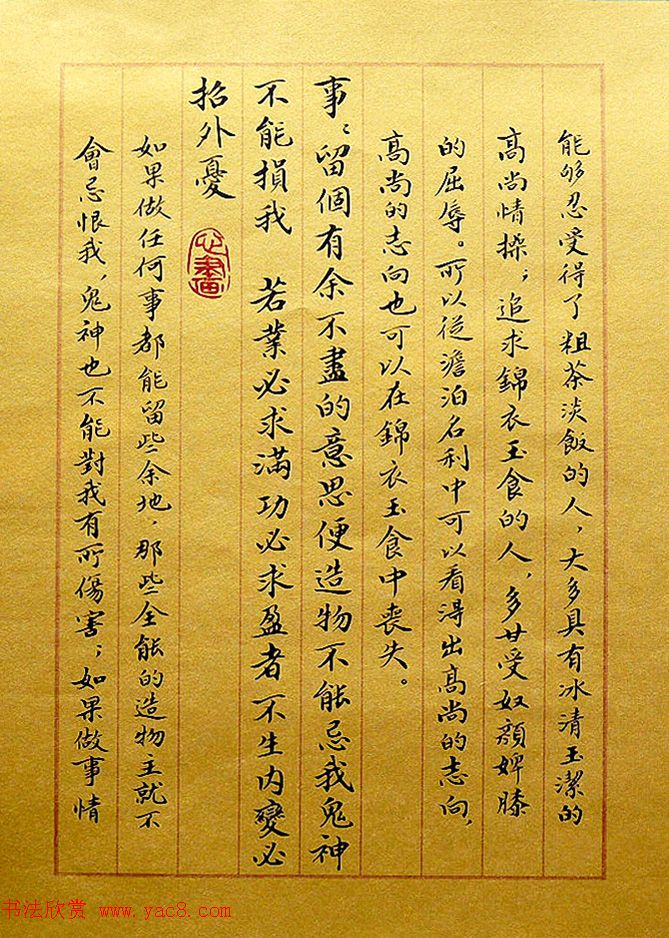 能够忍受得了粗茶淡飯的人，大多具有冰清玉潔的
高尚情操；追求錦衣玉食的人，多甘受奴顔婢膝
的屈辱。所以從澹泊名利中可以看得出高尚的志向，
高尚的志向也可以在錦衣玉食中喪失。
事：留個有余不盡的意思便造物不能忌我鬼神
不能損我　若業必求滿功必求盈者不生内變必
招外憂
心畫
如果做任何事都能留些余地，那些全能的造物主就不
會忌恨我，鬼神也不能對我有所傷害；如果做事情
书法欣赏 www.yac8.com